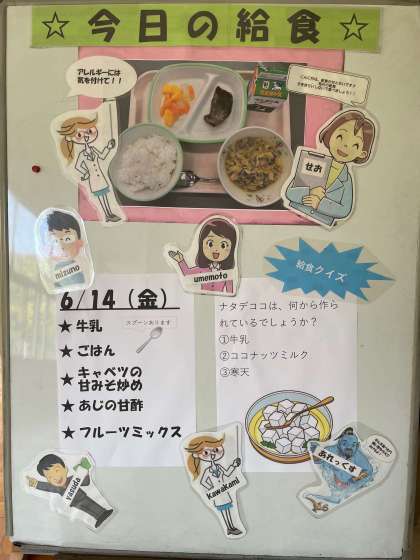 ☆今日の給食☆
アレルギーには
気を付けて！！
せお
mizuno
umemoto
給食クイズ
6/14（金）
スプーンあります
★ 牛乳
★ ごはん
★ キャベツの
甘みそ炒め
★ あじの甘酢
★ フルーツミックス
ナタデココは、何から作ら
れているでしょうか？
①牛乳
②ココナッツミルク
③寒天
yasuda
KawaKami
あれっくす